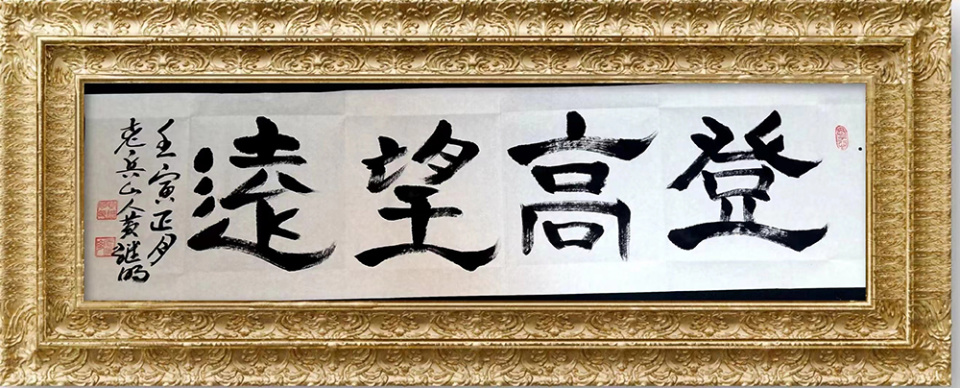 登高望遠
壬寅正月
老兵山人黄继明